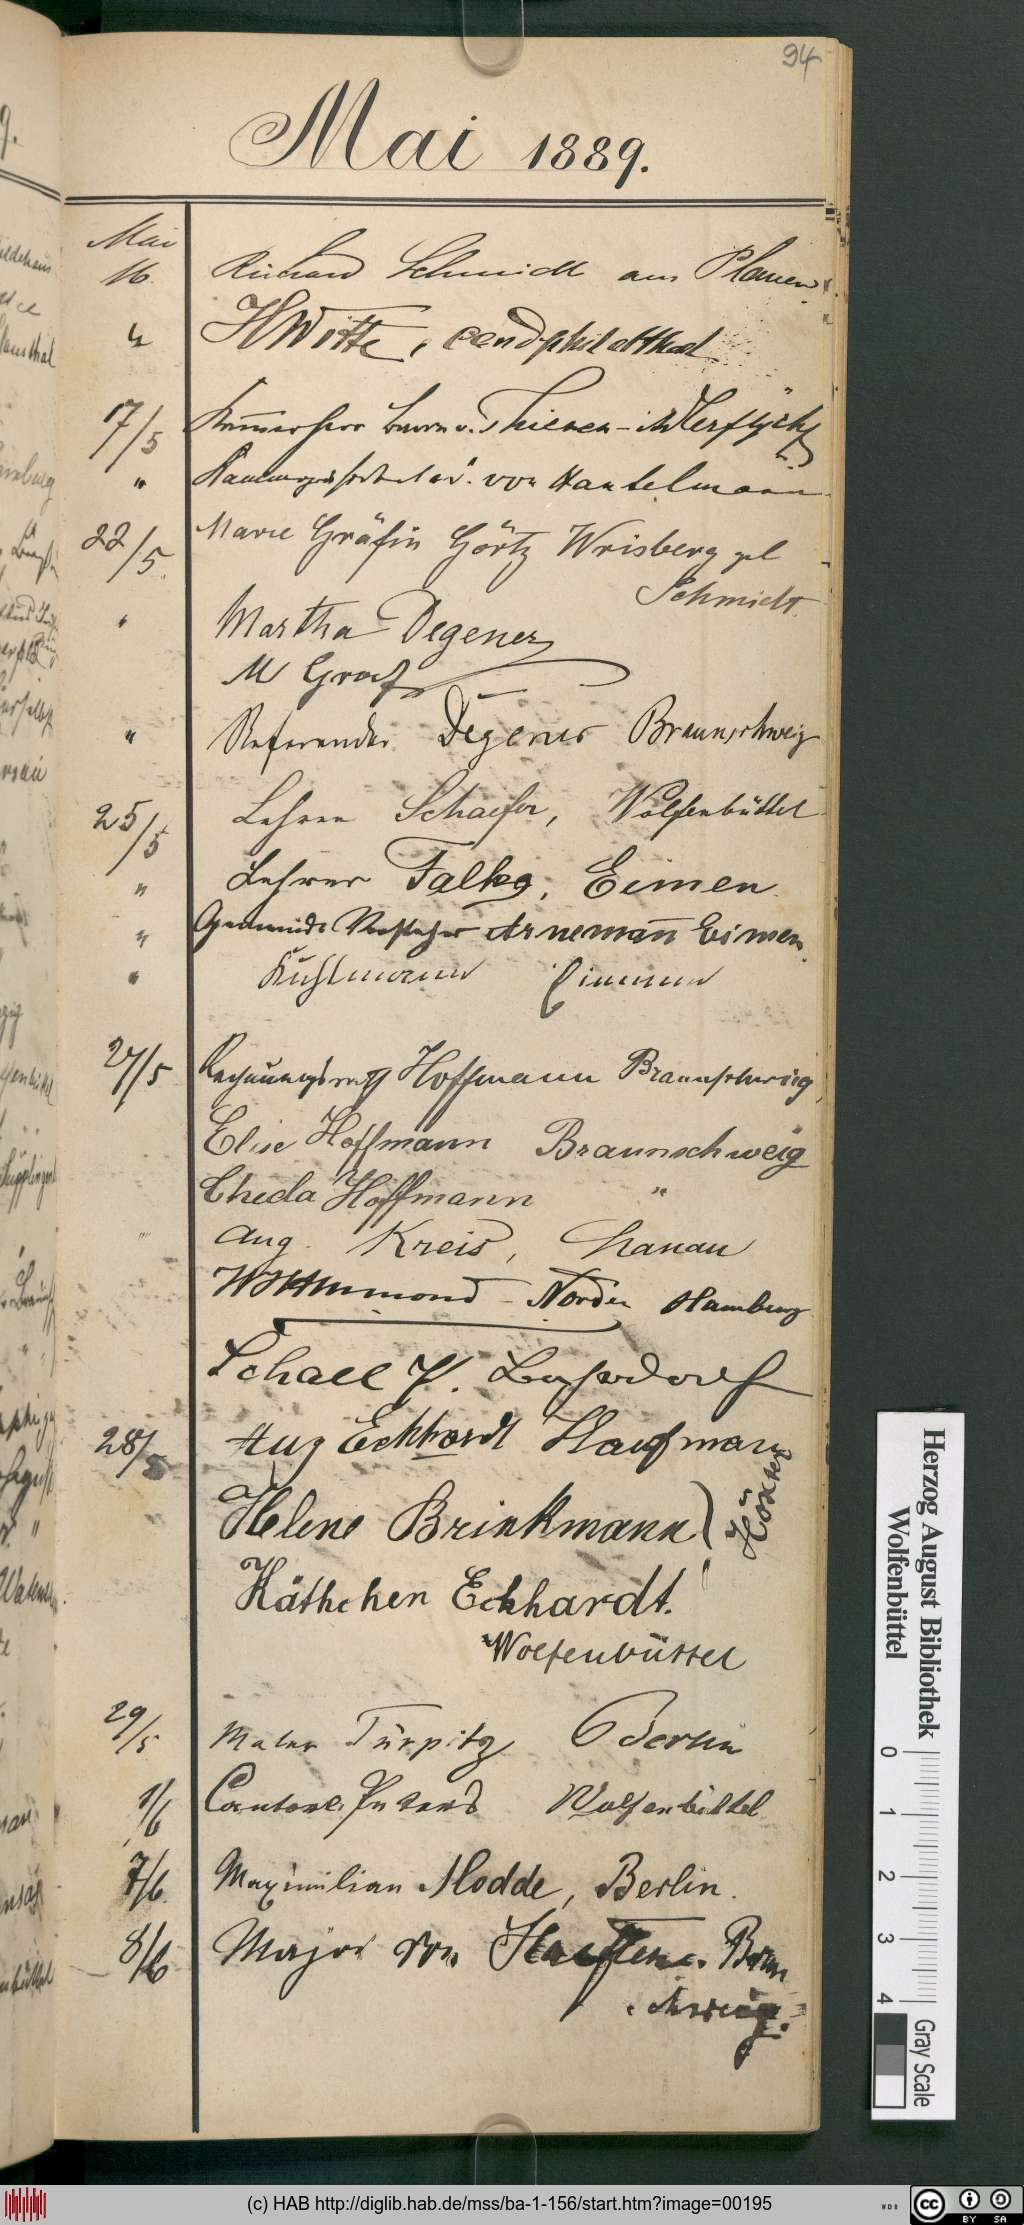 94
Mai 1889.
Mai
16. Richard Schmidt aus Plauen
" H Witte, cand phil et
17/5 Kammerherr v. Thienen-Adlerflycht
" von Hantelmann
22/5. Marie Gräfin Görtz Wrisberg
Schmidt.
" Martha Degener
M Graf
" Referendar Degener Braunschweig
25/5 Lehrer Schaefer, Wolfenbüttel
" Lehrer Falke, Eimen
" Gemeinde Vorsteher Arnemann Eimen.
" Kuhlmann
27/5 Rechnungsrath Hoffmann Braunschweig
Elise Hoffmann Braunschweig
Theda Hoffmann "
" Aug. Kreis, Hanau
Norden Hamburg
Schall P.
28/5 Aug Eckhardt Kaufmann
Helene Brinkmann Höxter
Käthchen Eckhardt.
Wolfenbüttel
29/5 Maler Türpitz Berlin
1/6 Wolfenbüttel
7/6. Maximilian Modde, Berlin.
8/6 Major von Haeften. Braun
schweig.
Herzog August Bibliothek
Wolfenbüttel
0 1 2 3 4
Gray Scale
(c) HAB http://diglib.hab.de/mss/ba-1-156/start.htm?image=00195
WDB
cc
BY SA